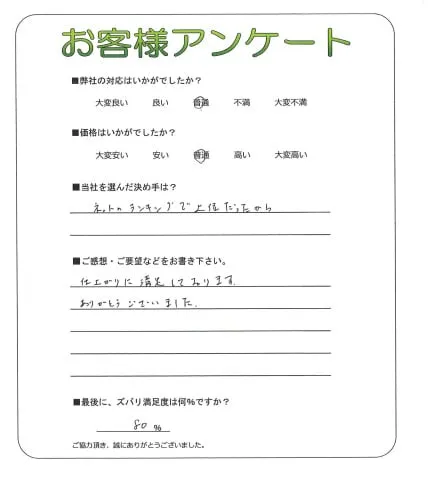 お客様アンケート
■弊社の対応はいかがでしたか？
大変良い 良い 普通 不満 大変不満
■価格はいかがでしたか？
大変安い 安い 普通 高い 大変高い
■当社を選んだ決め手は？
ネットのランキングで上位だったから
■ご感想・ご要望などをお書き下さい。
仕上がりに満足しております。
ありがとうございました。
■最後に、ズバリ満足度は何%ですか？
80 %
ご協力頂き、誠にありがとうございました。